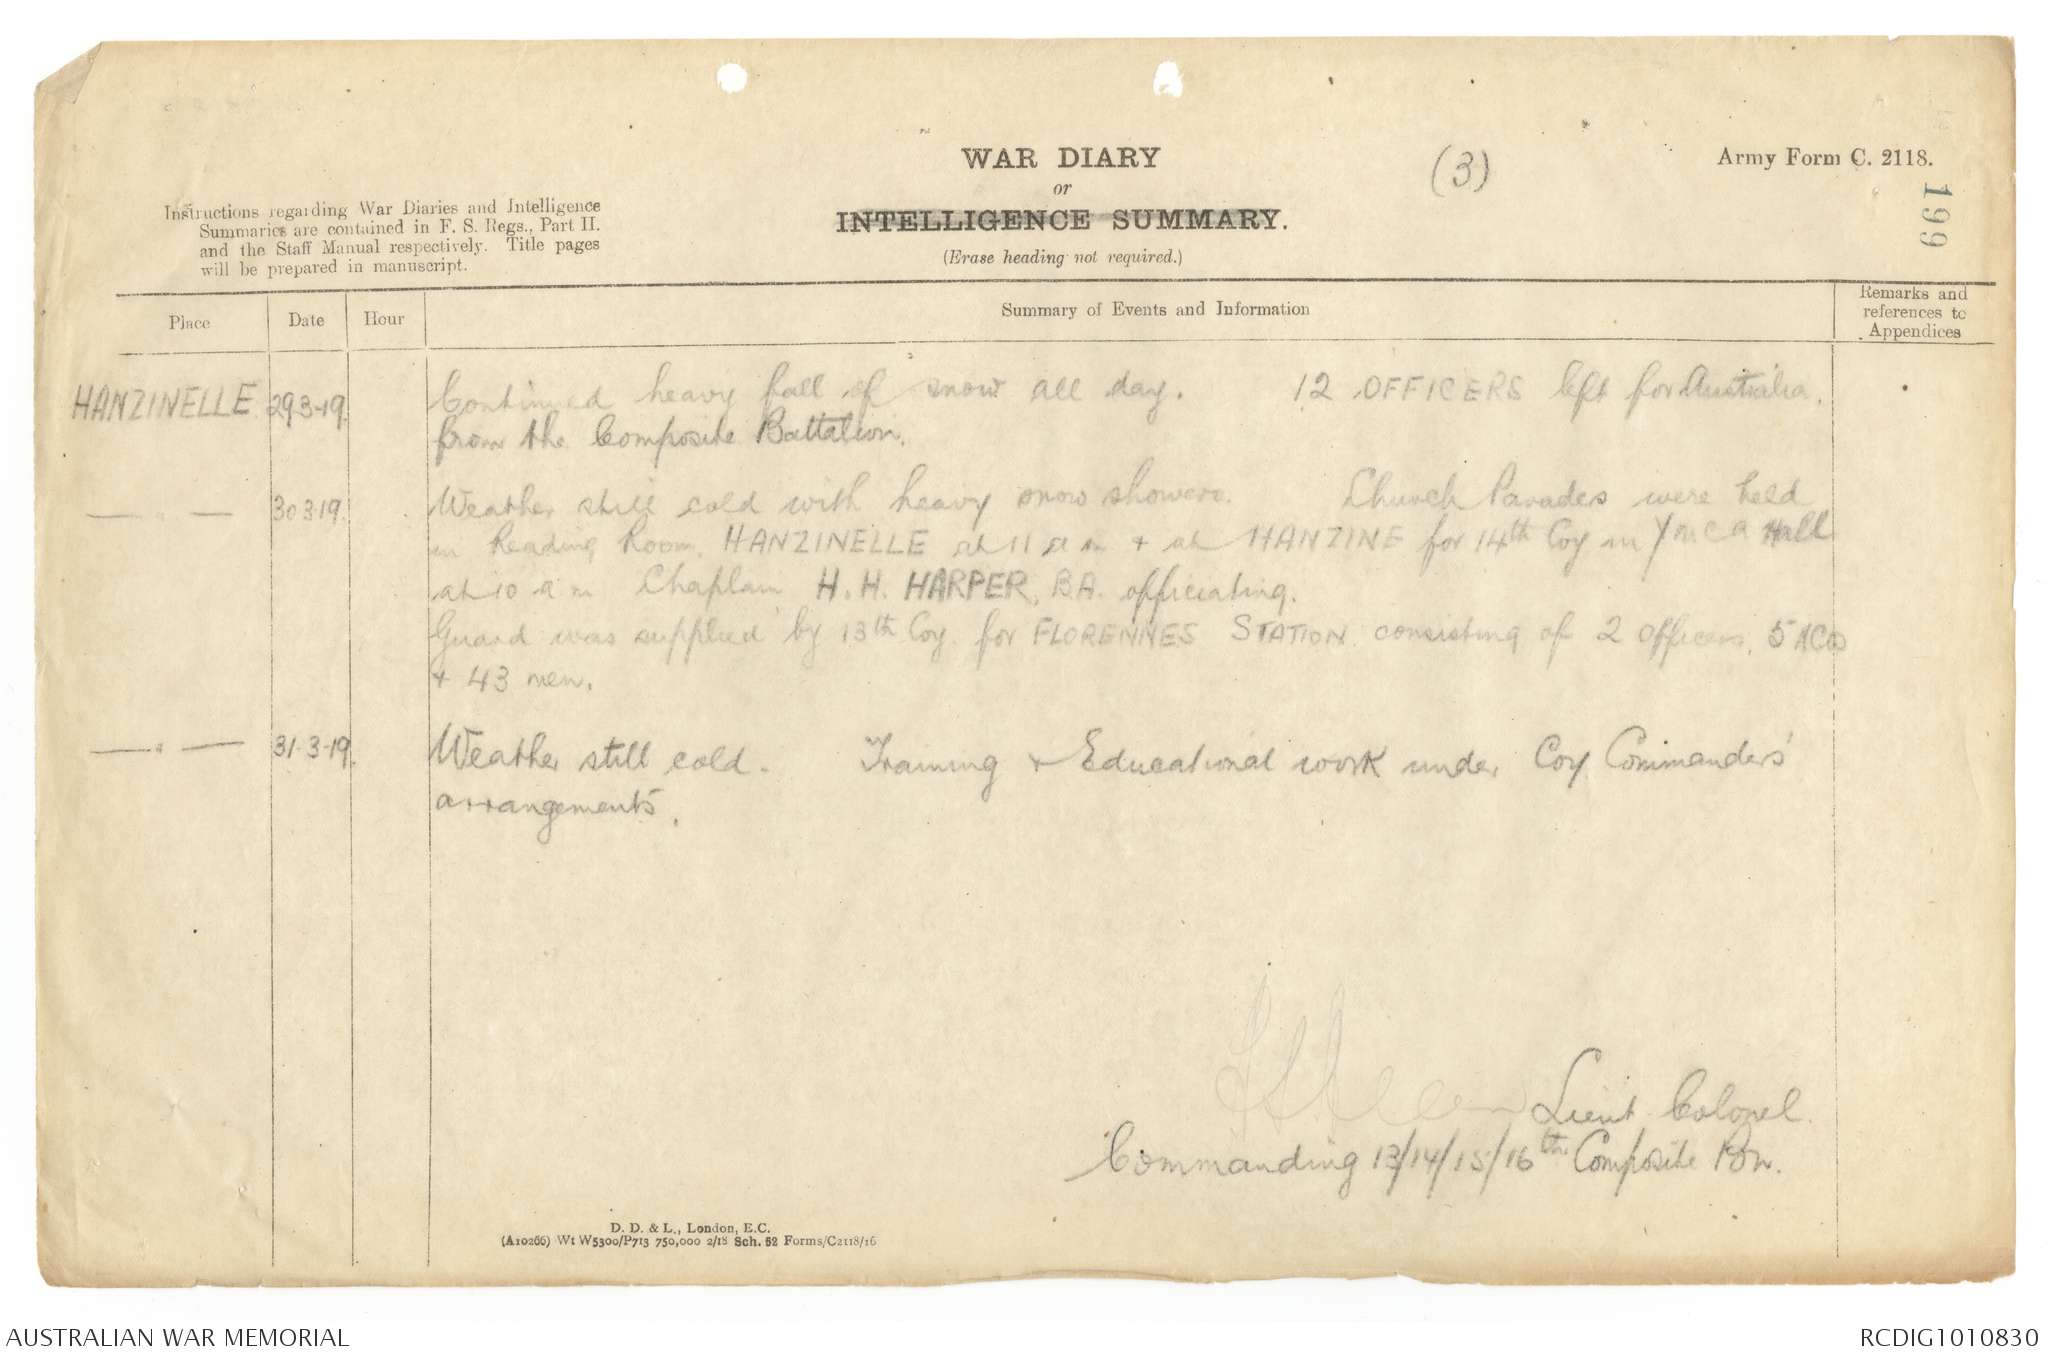 WAR DIARY
or
INTELLIGENCE SUMMARY.
(Erase heading not required.)
(3)
Army Form C. 2118.
199
Instructions regarding War Diaries and Intelligence
Summaries are contained in F. S. Regs., Part II.
and the Staff Manual respectively. Title pages
will be prepared in manuscript.
Place Date Hour Summary of Events and Information Remarks and
references to
Appendices
HANZINELLE 29.3.19. Continued heavy fall of snow all day. 12 OFFICERS left for Australia.
from the Composite Battalion.
— " — 30.3.19. Weather still cold with heavy snow showers. Church Parades were held
in Reading Room, HANZINELLE at 11 a m + at HANZINE for 14th Coy in YMCA Hall
at 10 a m Chaplain H. H. HARPER, B.A. officiating.
Guard was supplied by 13th Coy. for FLORENNES STATION. consisting of 2 officers, 5 NCOs
+ 43 men.
— " — 31-3-19. Weather still cold. Training + Educational work under Coy Commanders'
arrangements.
Lieut Colonel.
Commanding 13/14/15/16th Composite Bn.
D. D. & L., London, E.C.
(A10266) Wt W5300/P713 750,000 2/18 Sch. 52 Forms/C2118/16
AUSTRALIAN WAR MEMORIAL
RCDIG1010830